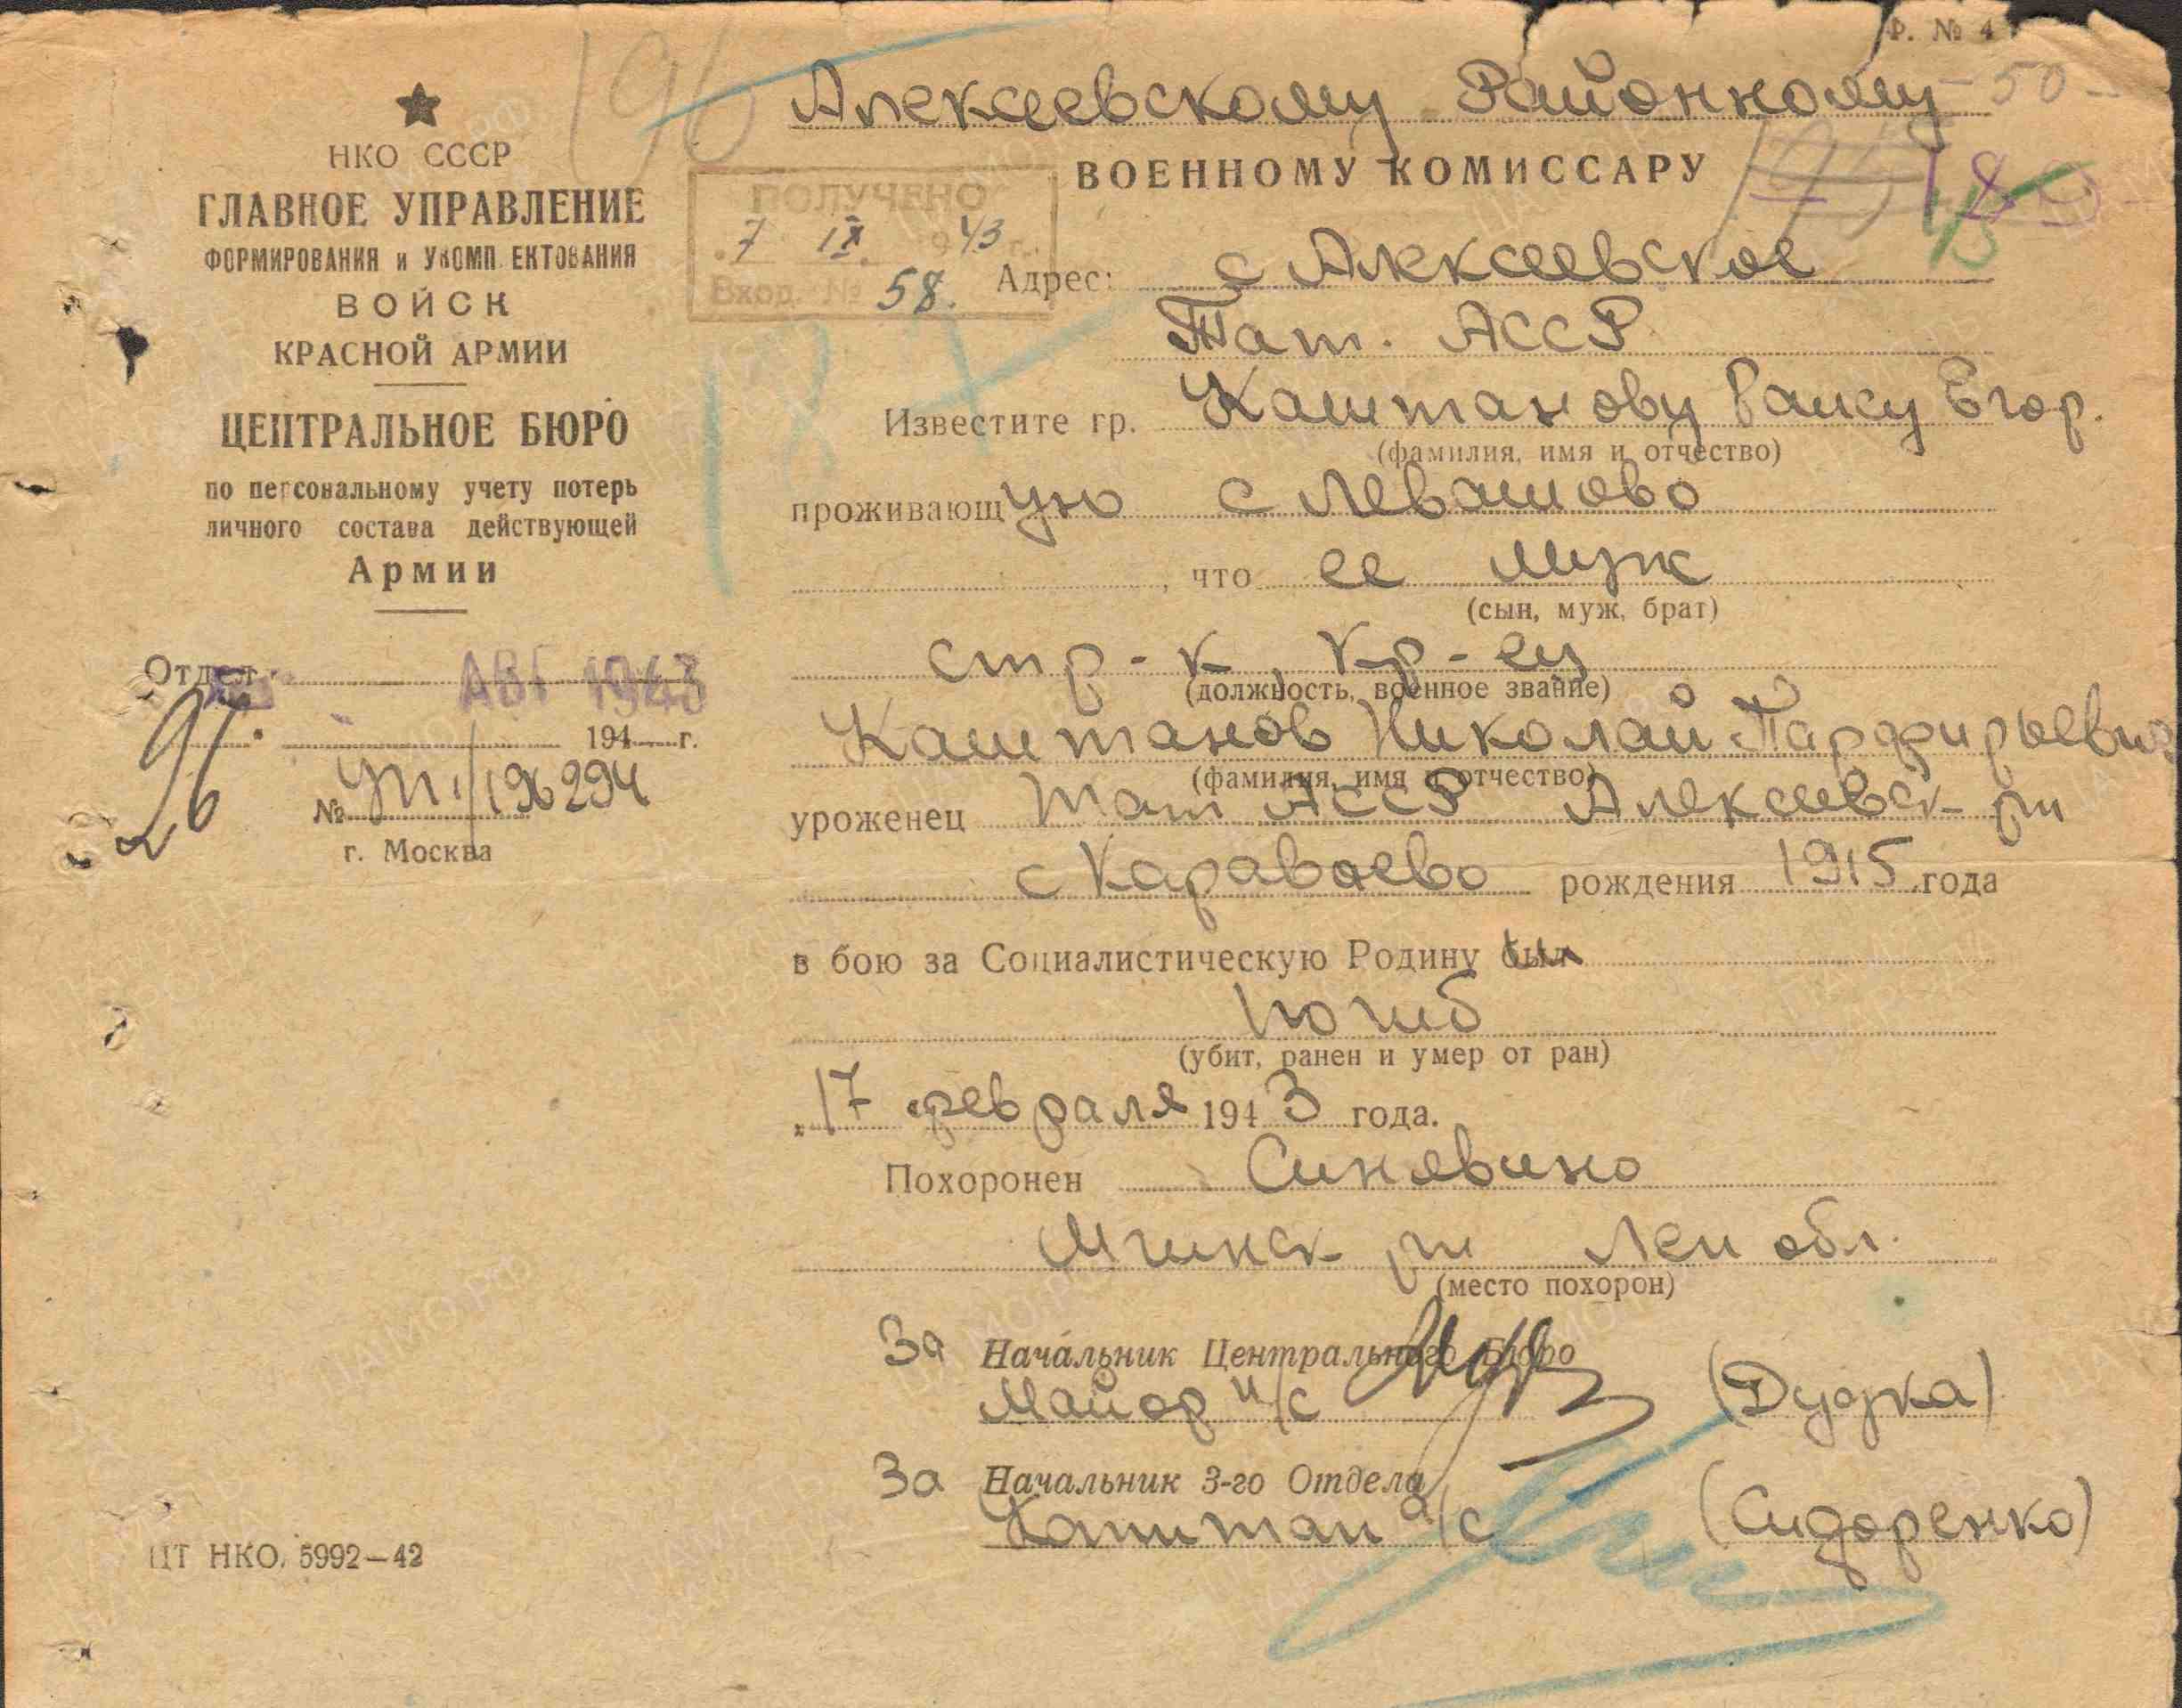 Ф. № 4
196
Алексеевскому Районному
- 50 -
ВОЕННОМУ КОМИССАРУ
НКО СССР
ГЛАВНОЕ УПРАВЛЕНИЕ
ФОРМИРОВАНИЯ и УКОМП ЕКТОВАНИЯ
ВОЙСК
КРАСНОЙ АРМИИ
ЦЕНТРАЛЬНОЕ БЮРО
по персональному учету потерь
личного состава действующей
Армии
Отдел
АВГ 1943
194 г.
№ 196294
г. Москва
ПОЛУЧЕНО
7 IX 943 г.
Вход. № 58.
Адрес: с Алексеевское
Тат. АССР
Известите гр. Каштанову Раису Егор.
(фамилия, имя и отчество)
проживающую с Левашово
, что ее муж
(сын, муж, брат)
стр-к, кр-ец
(должность, военное звание)
Каштанов Николай Парфирьевич
(фамилия, имя и отчество)
уроженец Тат АССР Алексеевск рн
с Караваево рождения 1915 года
в бою за Социалистическую Родину был
погиб
(убит, ранен и умер от ран)
"17 февраля 1943 года.
Похоронен Синявино
Мгинск рн Лен обл.
(место похорон)
За Начальник Центрального Бюро
Майор и/с (Дудка)
За Начальник 3-го Отдела
Капитан а/с (Сидоренко)
ЦТ НКО. 5992—42